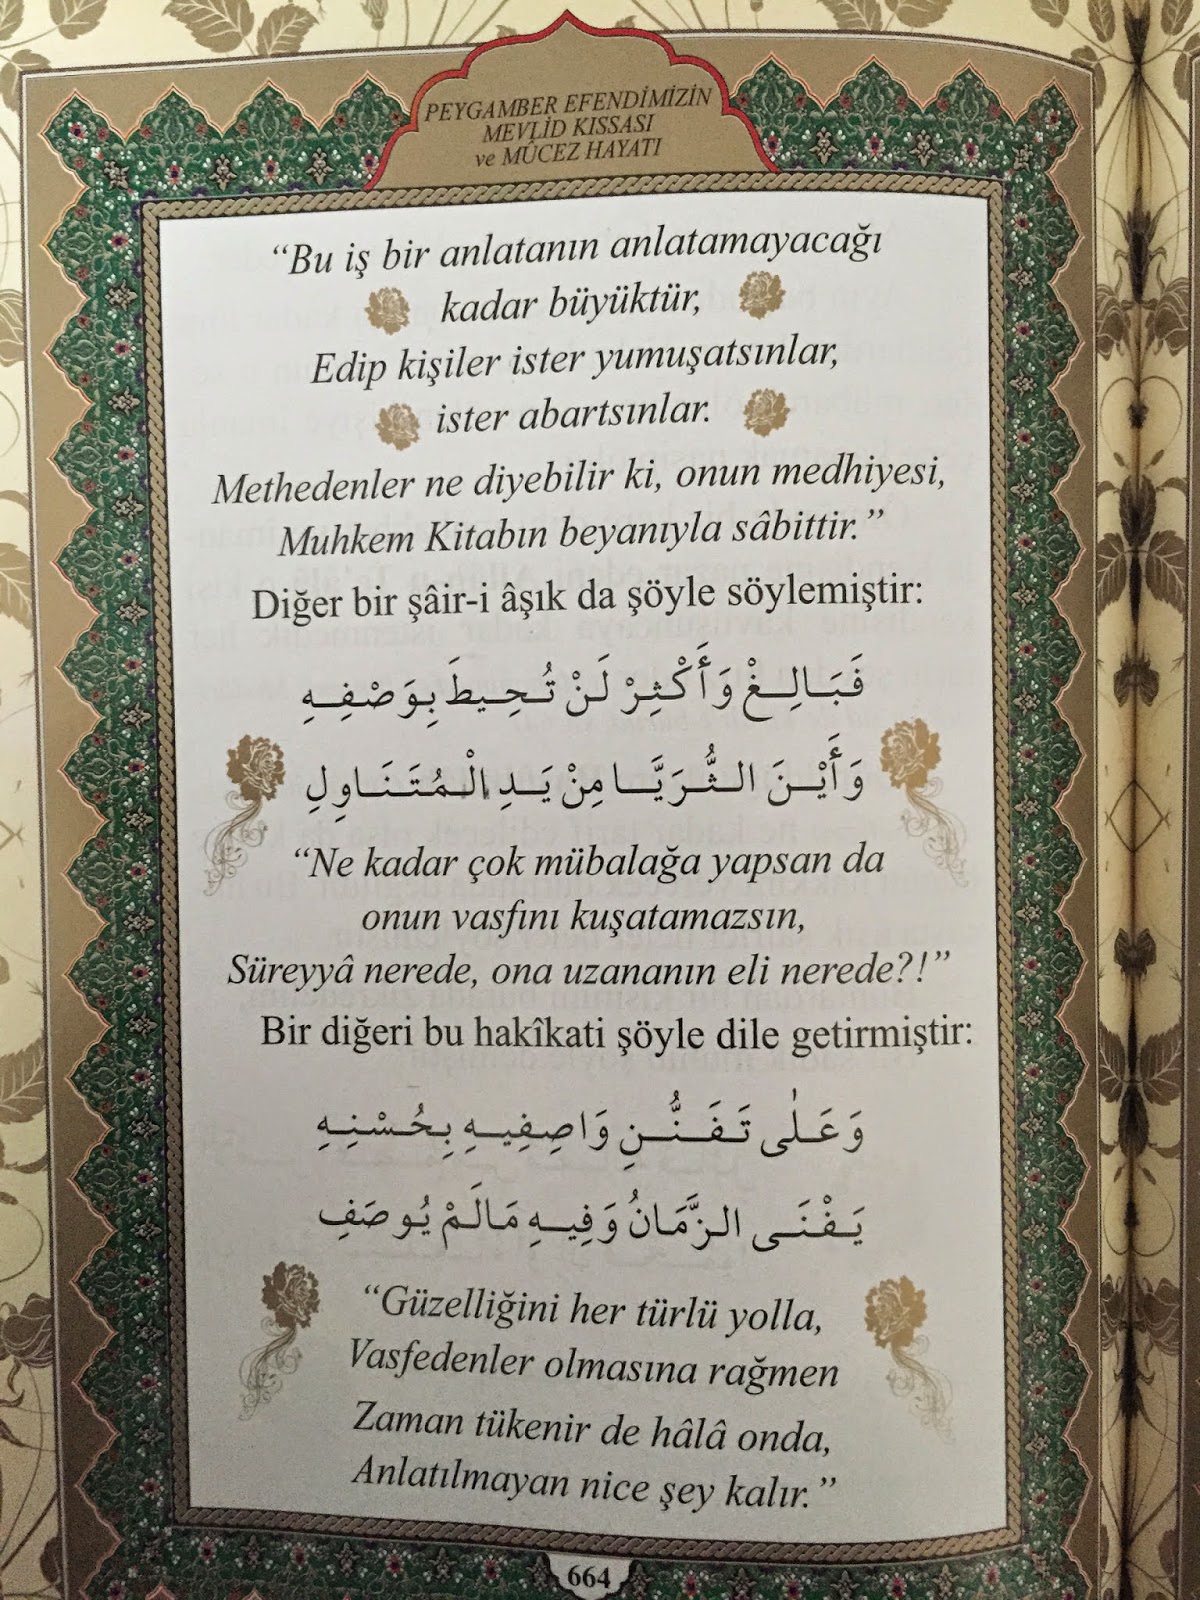 PEYGAMBER EFENDİMİZİN
MEVLİD KISSASI
ve MÛCEZ HAYATI
“Bu iş bir anlatanın anlatamayacağı
kadar büyüktür,
Edip kişiler ister yumuşatsınlar,
ister abartsınlar.
Methedenler ne diyebilir ki, onun medhiyesi,
Muhkem Kitabın beyanıyla sâbittir.”
Diğer bir şâir-i âşık da şöyle söylemiştir:
فَبَالِغْ وَأَكْثِرْ لَنْ تُحِيطَ بِوَصْفِهِ
وَأَيْنَ الثُّرَيَّا مِنْ يَدِ الْمُتَنَاوِلِ
“Ne kadar çok mübalağa yapsan da
onun vasfını kuşatamazsın,
Süreyyâ nerede, ona uzananın eli nerede?!”
Bir diğeri bu hakîkati şöyle dile getirmiştir:
وَعَلٰى تَفَنُّنِ وَاصِفِيهِ بِحُسْنِهِ
يَفْنَى الزَّمَانُ وَفِيهِ مَالَمْ يُوصَفِ
“Güzelliğini her türlü yolla,
Vasfedenler olmasına rağmen
Zaman tükenir de hâlâ onda,
Anlatılmayan nice şey kalır.”
664